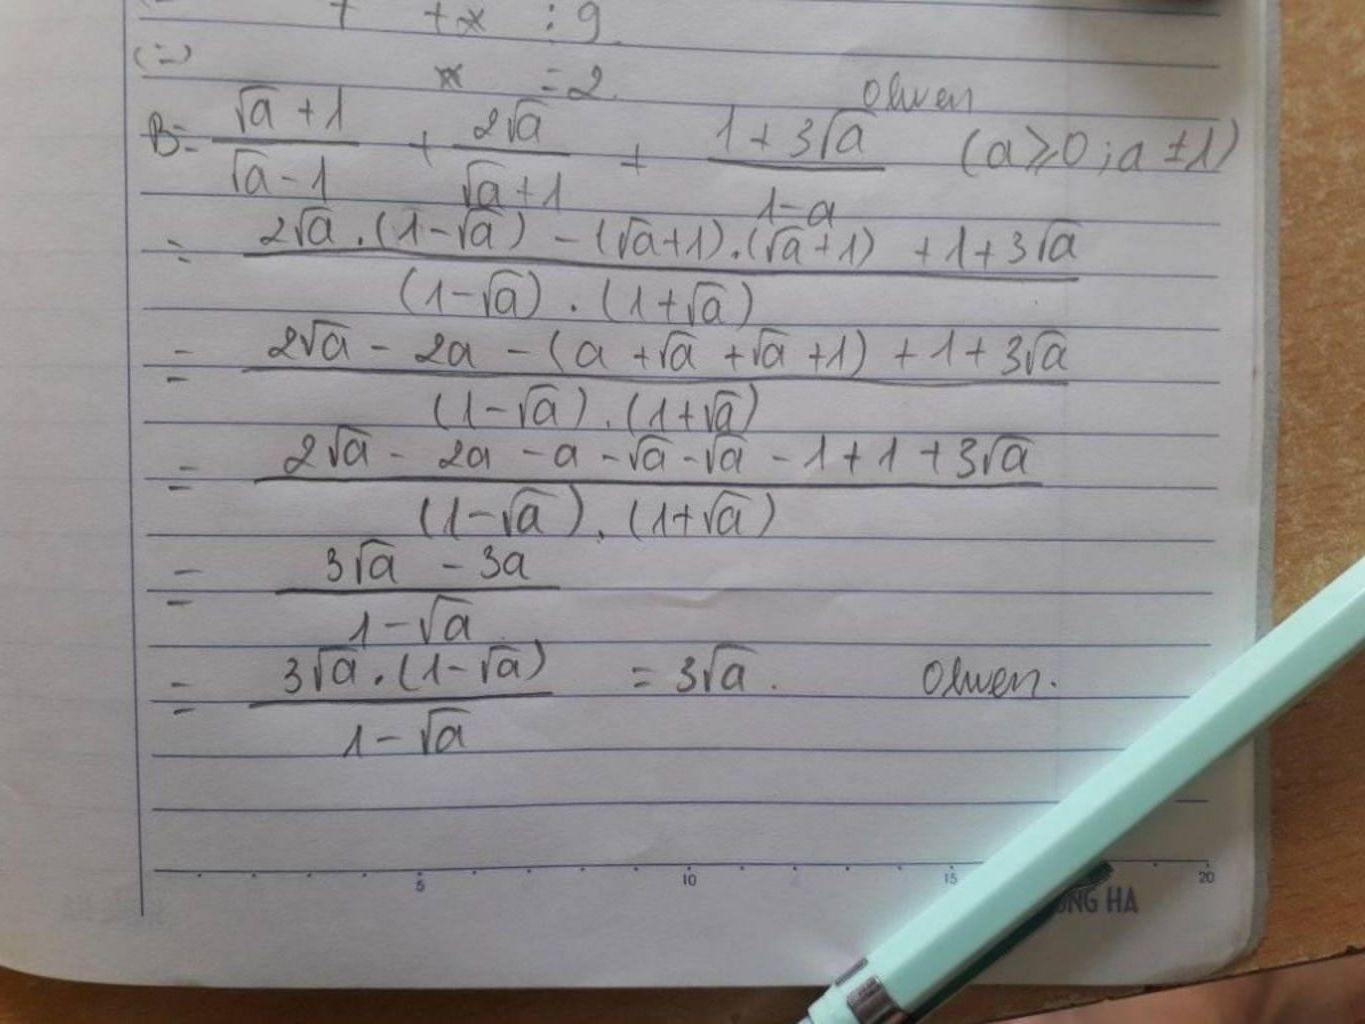 + +x : 9
(=)
x = 2. Olwen
B = (√a + 1)/(√a - 1) + 2√a/(√a + 1) + (1 + 3√a)/(1 - a) (a ⩾ 0 ; a ± 1)
= (2√a . (1 - √a) - (√a + 1) . (√a + 1) + 1 + 3√a)/((1 - √a) . (1 + √a))
= (2√a - 2a - (a + √a + √a + 1) + 1 + 3√a)/((1 - √a) . (1 + √a))
= (2√a - 2a - a - √a - √a - 1 + 1 + 3√a)/((1 - √a) . (1 + √a))
= (3√a - 3a)/(1 - √a)
= (3√a . (1 - √a))/(1 - √a) = 3√a . Olwen.
5 10 15 20
ONG HA